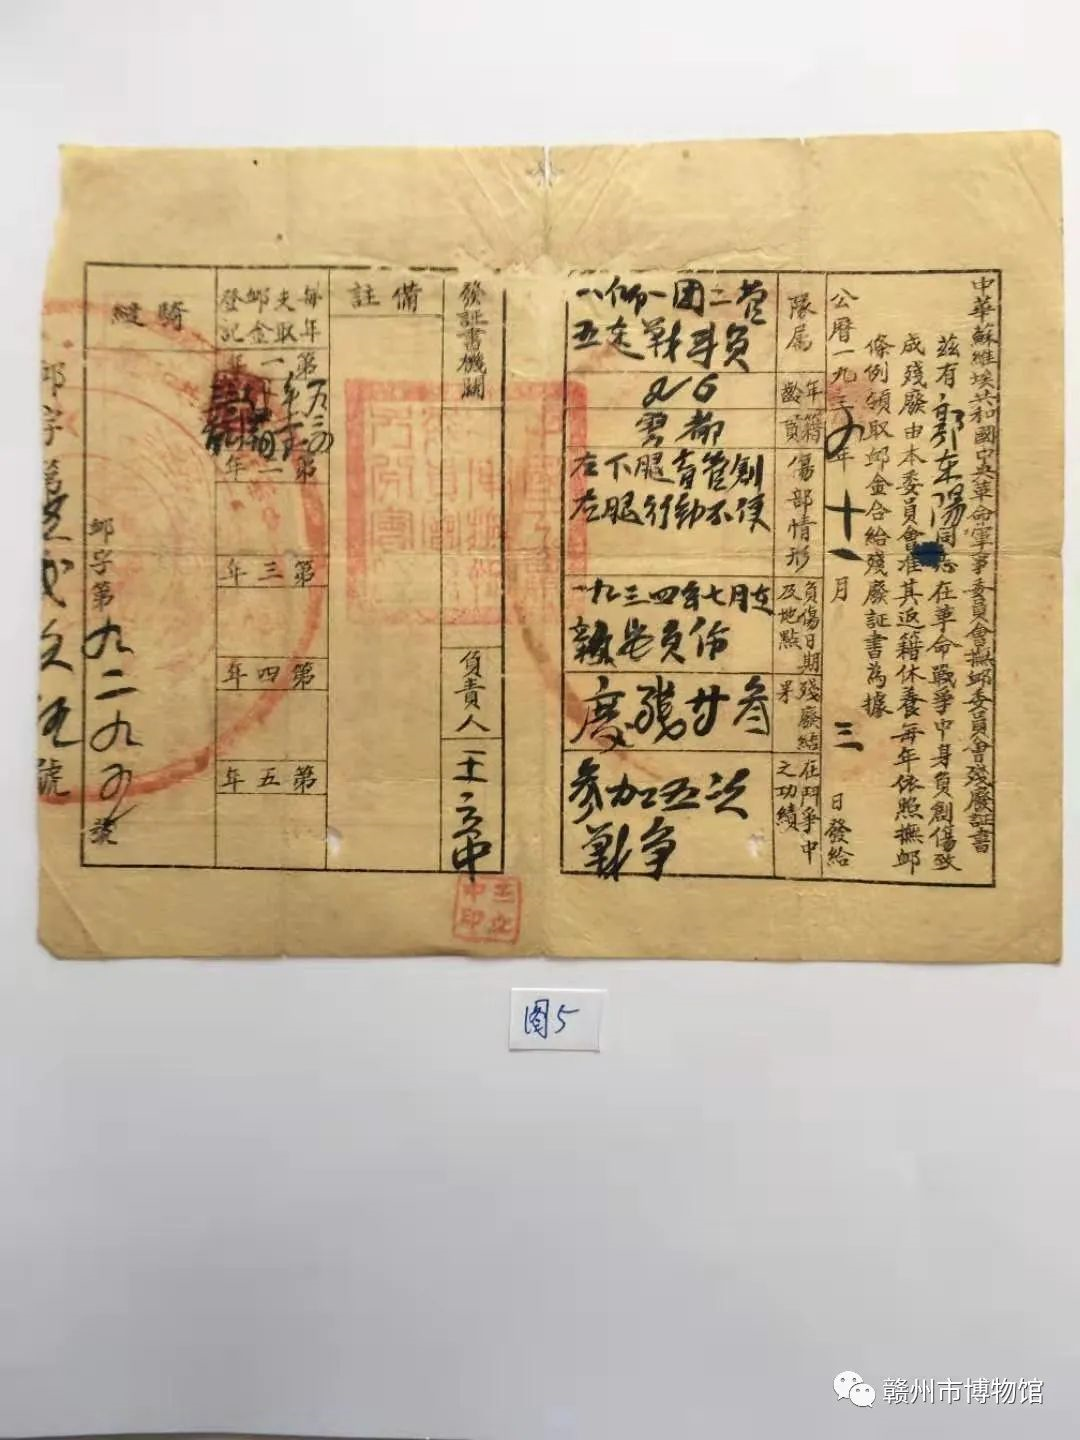 中華蘇維埃共和國中央革命軍事委員會撫卹委員會殘廢証書
茲有郭东陽同志在革命戰爭中身負創傷致
成殘廢由本委員會准其返籍休養每年依照撫卹
條例領取卹金合給殘廢証書為據
公曆一九三四年十一月三日發給
隊屬
八师一团二营
五连战斗员
年齡
26
籍貫
雩都
傷部情形
左下腿骨管創
左腿行动不便
負傷日期及地點
一九三四年七月在
負伤
殘廢結果
廢殘廿叁
在鬥爭中之功績
参加五次
戰争
發証書機關
負責人
王立中
王立中印
備註
每年支取卹金登記
第一年
第二年
第三年
第四年
第五年
騎縫
卹字第九二九五號
图5
赣州市博物馆